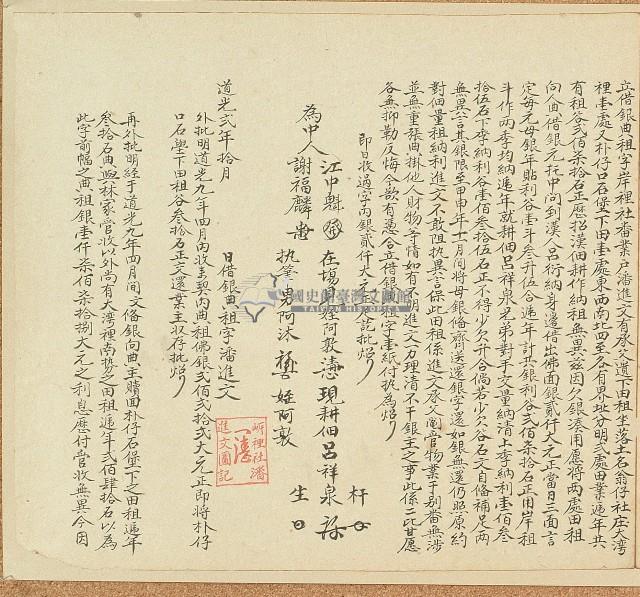 立借銀典租字岸裡社番業戶潘進文有承父遺下田租坐落土名翁仔社庄大湾
裡壹處又朴仔口石堡下田壹處東西南北四至各有界址分明弍處田業遞年共
有租谷弍佰柒拾石正歷招漢佃耕作納租無異茲因欠銀湊用愿將两處田租
向人典借銀元托中問到漢人呂衍納身邊借出佛面銀貳仟大元正當日三面言
定每元母銀年貼利谷壹斗叁升伍合遞年計共銀利谷弍佰柒拾石正用岸租
斗作两季均納遞年就耕佃呂祥泉兄弟對手丈量納清上季納利壹佰叁
拾伍石下季納利谷壹佰叁拾伍石正不得少欠升合倘若少欠谷石文自俻補足两
無異言其銀限至甲申年十一月間將母銀俻齊送還銀字還如銀無還仍照原約
對佃量租納利進文不敢阻执異言保此田租係進文承父鬮管物業與別番無涉
並無重張典掛他人財物等情如有不明進文力理清不干銀主之事此係二比甘愿
各無抑勒反悔今欲有憑合立借銀典租字壹紙付执為炤
即日收過字內銀貳仟大元正完足批炤
為中人 江中魁
謝福麟
在場 姪阿敦
現耕佃呂祥泉
执筆男阿沐
姪阿敦
道光弍年拾月 日借銀典租字潘進文
外批明道光九年四月內收去契內典租佛銀弍佰弍拾弍大元正即將朴仔
口石堡下田租谷叁拾石正交還業主收存批炤
再外批明經于道光九年四月間文俻銀向典主贖回朴仔石堡下之田租遞年
叁拾石典與林家管收以外尚有大湾裡南勢之田租遞年弍佰肆拾石以為
此字前幅之典租銀壹仟柒佰柒拾捌大元之利息應付管收無異今因
岸裡社潘
進文圖記
國史館臺灣文獻館
TAIWAN HISTORICA